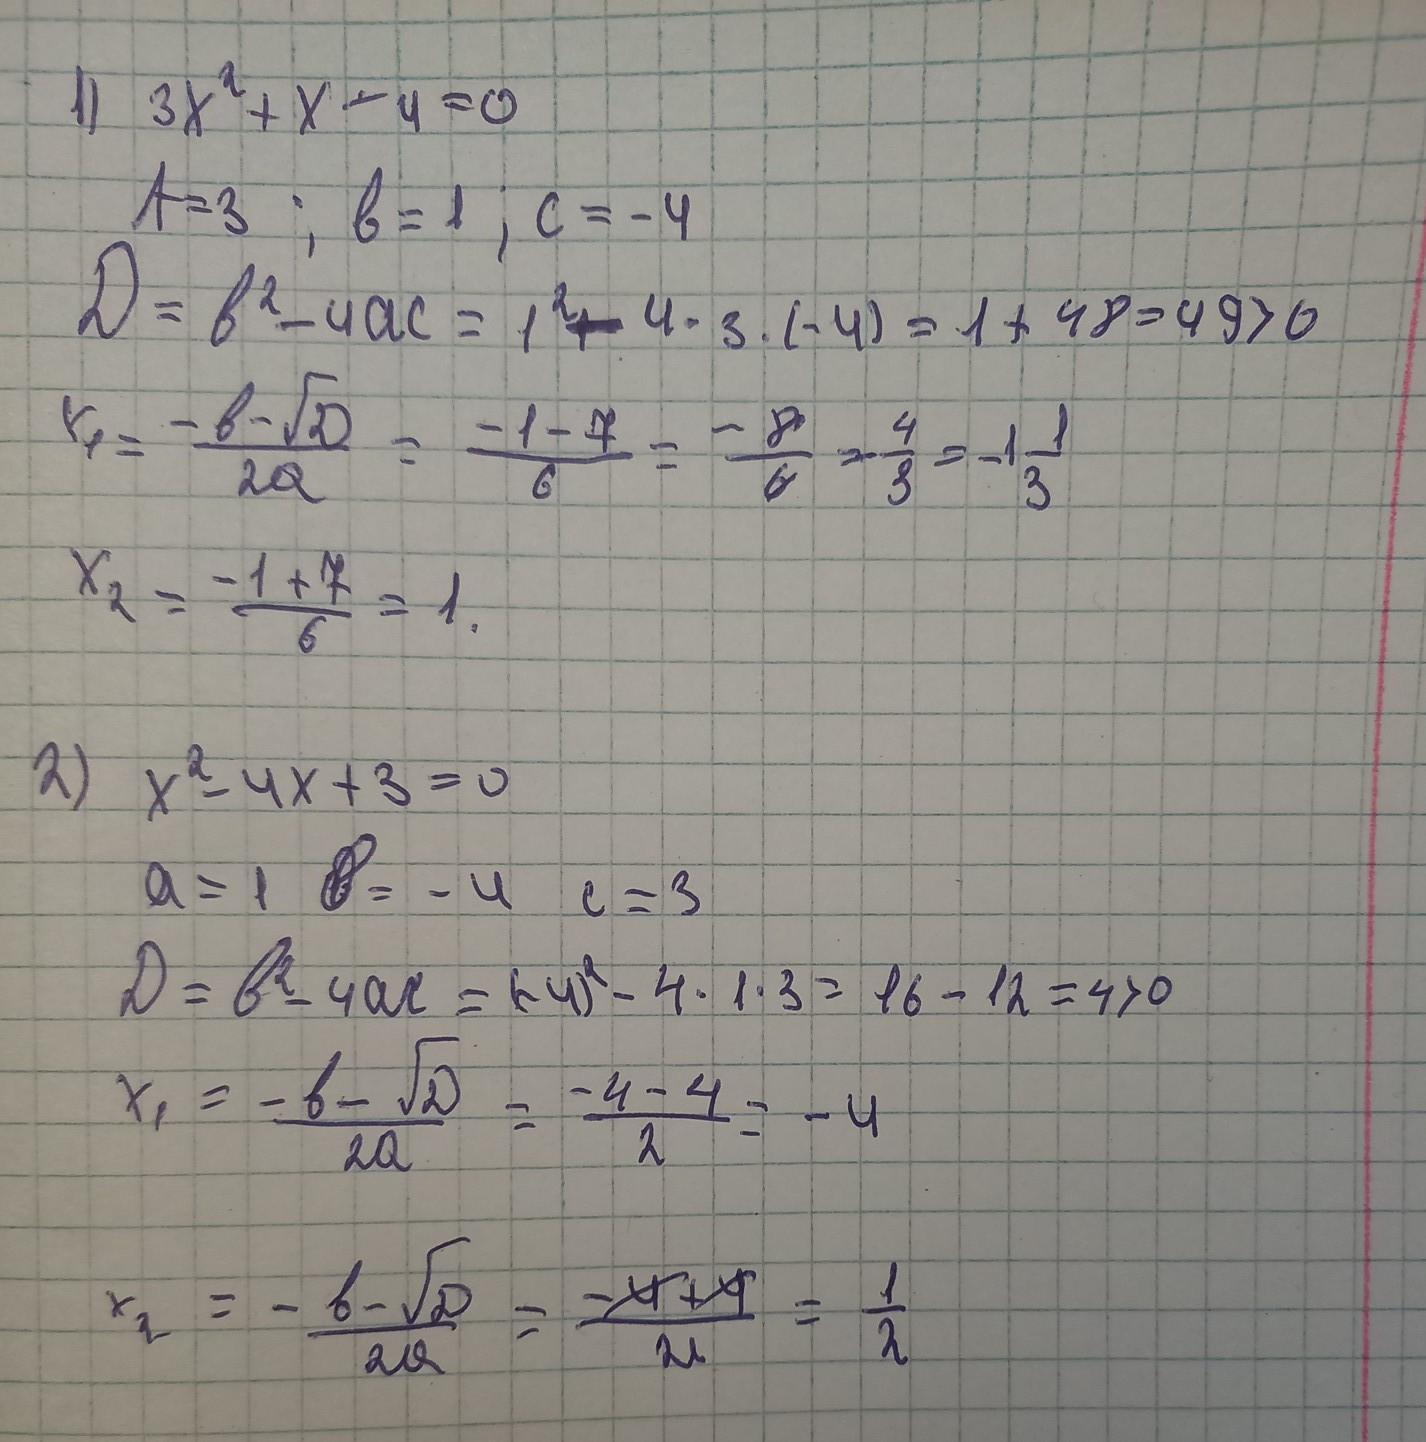 1) 3x² + x - 4 = 0
A = 3 ; b = 1 ; c = -4
D = b² - 4ac = 1² - 4 · 3 · (-4) = 1 + 48 = 49 > 0
x₁ = (-b - √D)/2a = (-1 - 7)/6 = -8/6 = -4/3 = -1 1/3
x₂ = (-1 + 7)/6 = 1.
2) x² - 4x + 3 = 0
a = 1 b = -4 c = 3
D = b² - 4ac = (-4)² - 4 · 1 · 3 = 16 - 12 = 4 > 0
x₁ = (-b - √D)/2a = (-4 - 4)/2 = -4
x₂ = (-b - √D)/2a = (-4 + 4)/2 = 1/2